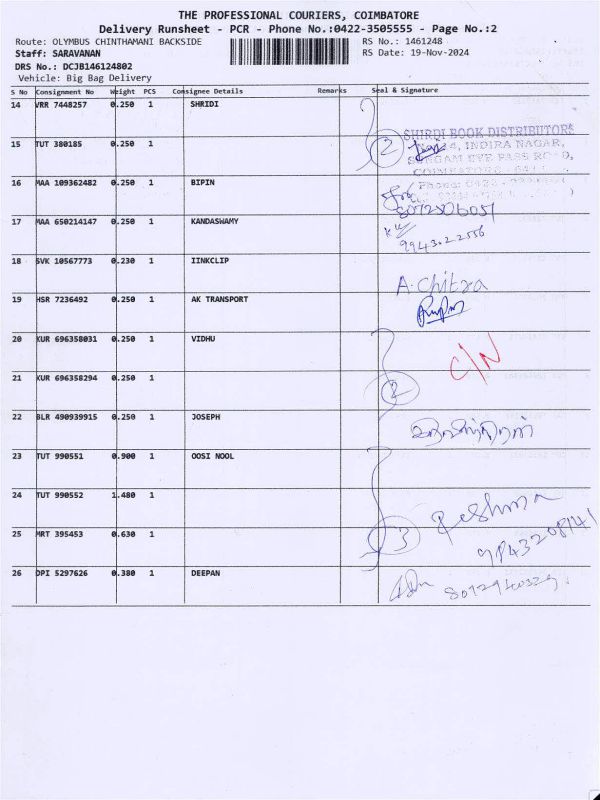 THE PROFESSIONAL COURIERS, COIMBATORE
Delivery Runsheet - PCR - Phone No.:0422-3505555 - Page No.:2
Route: OLYMBUS CHINTHAMANI BACKSIDE RS No.: 1461248
Staff: SARAVANAN RS Date: 19-Nov-2024
DRS No.: DCJB146124802
Vehicle: Big Bag Delivery
S No Consignment No Weight PCS Consignee Details Remarks Seal & Signature
14 VRR 7448257 0.250 1 SHRIDI
SHIRDI BOOK DISTRIBUTORS
15 TUT 380185 0.250 1 2 4, INDIRA NAGAR,
16 MAA 109362482 0.250 1 BIPIN
Phone: 0422
8072506051
17 MAA 650214147 0.250 1 KANDASWAMY
9943022556
18 SVK 10567773 0.230 1 IINKCLIP
A. Chitra
19 HSR 7236492 0.250 1 AK TRANSPORT
20 KUR 696358031 0.250 1 VIDHU C/N
21 KUR 696358294 0.250 1 2
22 BLR 490939915 0.250 1 JOSEPH
23 TUT 990551 0.900 1 OOSI NOOL
24 TUT 990552 1.480 1 Reshma
25 MRT 395453 0.630 1 3
26 DPI 5297626 0.380 1 DEEPAN